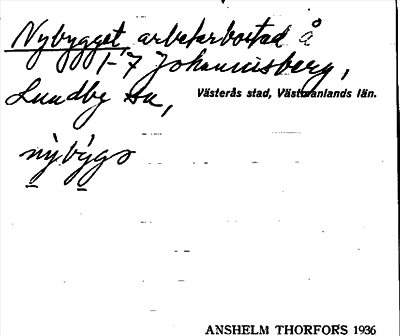 Nybygget, arbetarbostad å
f 7 Johannisberg,
Lundby sn,
Västerås stad, Västmanlands län.
nỳbýgg
ANSHELM THORFORS 1936